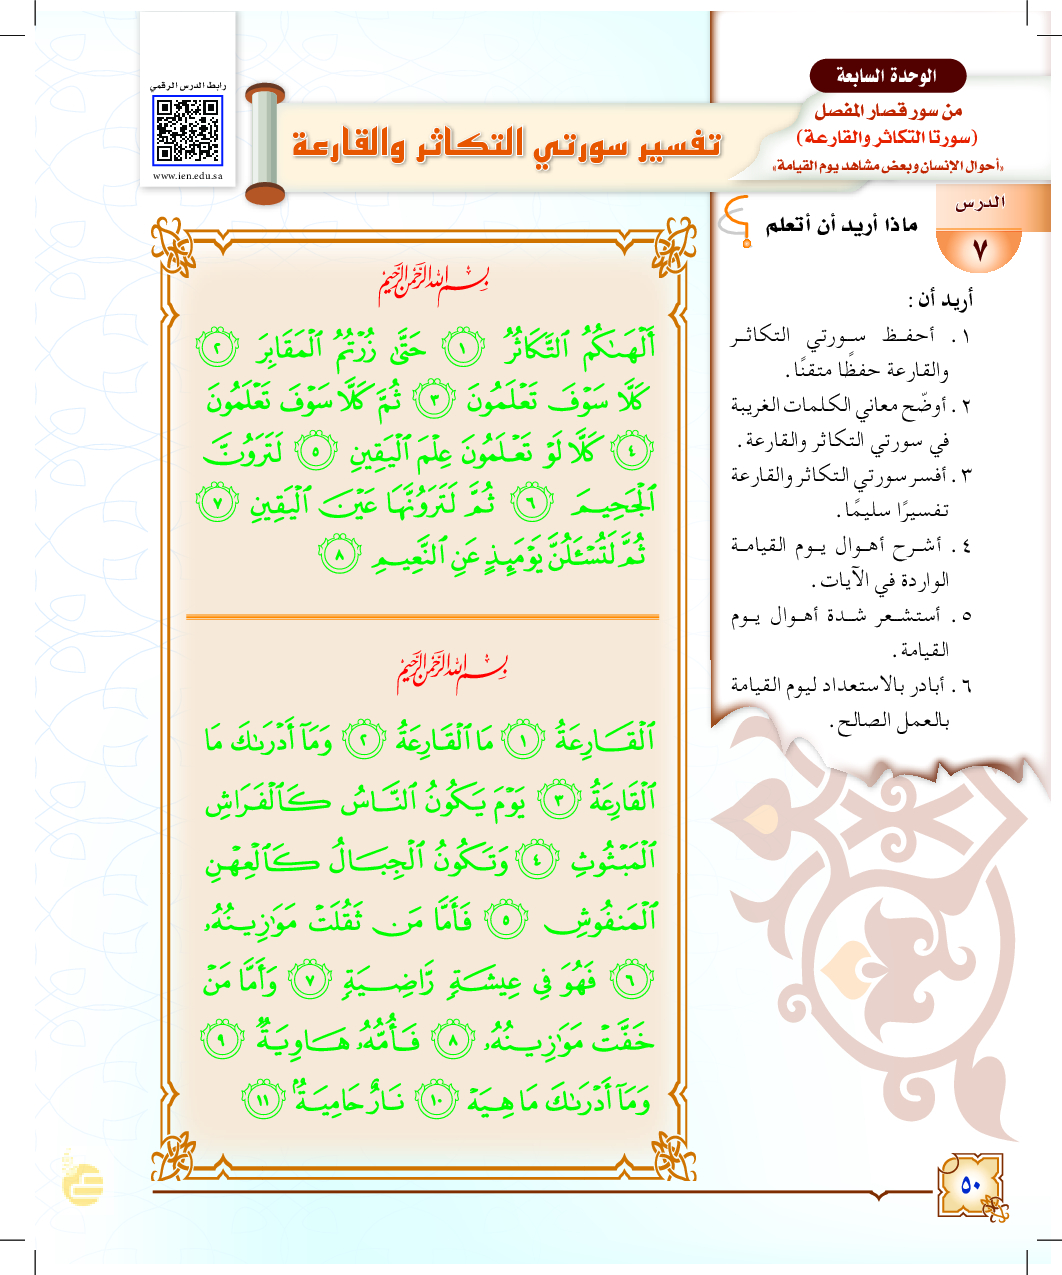 الوحدة السابعة
من سور قصار المفصل
(سورتا التكاثر والقارعة)
«أحوال الإنسان وبعض مشاهد يوم القيامة»
رابط الدرس الرقمي
www.ien.edu.sa
تفسير سورتي التكاثر والقارعة
الدرس
٧
ماذا أريد أن أتعلم
أريد أن :
١. أحفظ سورتي التكاثر
والقارعة حفظًا متقنًا.
٢. أوضّح معاني الكلمات الغريبة
في سورتي التكاثر والقارعة.
٣. أفسر سورتي التكاثر والقارعة
تفسيرًا سليمًا.
٤. أشرح أهوال يوم القيامة
الواردة في الآيات.
٥. أستشعر شدة أهوال يوم
القيامة.
٦. أبادر بالاستعداد ليوم القيامة
بالعمل الصالح.
بِسْمِ اللهِ الرَّحْمَنِ الرَّحِيمِ
أَلْهَىٰكُمُ ٱلتَّكَاثُرُ ١ حَتَّىٰ زُرْتُمُ ٱلْمَقَابِرَ ٢
كَلَّا سَوْفَ تَعْلَمُونَ ٣ ثُمَّ كَلَّا سَوْفَ تَعْلَمُونَ
٤ كَلَّا لَوْ تَعْلَمُونَ عِلْمَ ٱلْيَقِينِ ٥ لَتَرَوُنَّ
ٱلْجَحِيمَ ٦ ثُمَّ لَتَرَوُنَّهَا عَيْنَ ٱلْيَقِينِ ٧
ثُمَّ لَتُسْـَٔلُنَّ يَوْمَئِذٍ عَنِ ٱلنَّعِيمِ ٨
بِسْمِ اللهِ الرَّحْمَنِ الرَّحِيمِ
ٱلْقَارِعَةُ ١ مَا ٱلْقَارِعَةُ ٢ وَمَآ أَدْرَىٰكَ مَا
ٱلْقَارِعَةُ ٣ يَوْمَ يَكُونُ ٱلنَّاسُ كَٱلْفَرَاشِ
ٱلْمَبْثُوثِ ٤ وَتَكُونُ ٱلْجِبَالُ كَٱلْعِهْنِ
ٱلْمَنفُوشِ ٥ فَأَمَّا مَن ثَقُلَتْ مَوَٰزِينُهُۥ
٦ فَهُوَ فِى عِيشَةٍ رَّاضِيَةٍ ٧ وَأَمَّا مَنْ
خَفَّتْ مَوَٰزِينُهُۥ ٨ فَأُمُّهُۥ هَاوِيَةٌ ٩
وَمَآ أَدْرَىٰكَ مَا هِيَهْ ١٠ نَارٌ حَامِيَةٌۢ ١١
٥٠